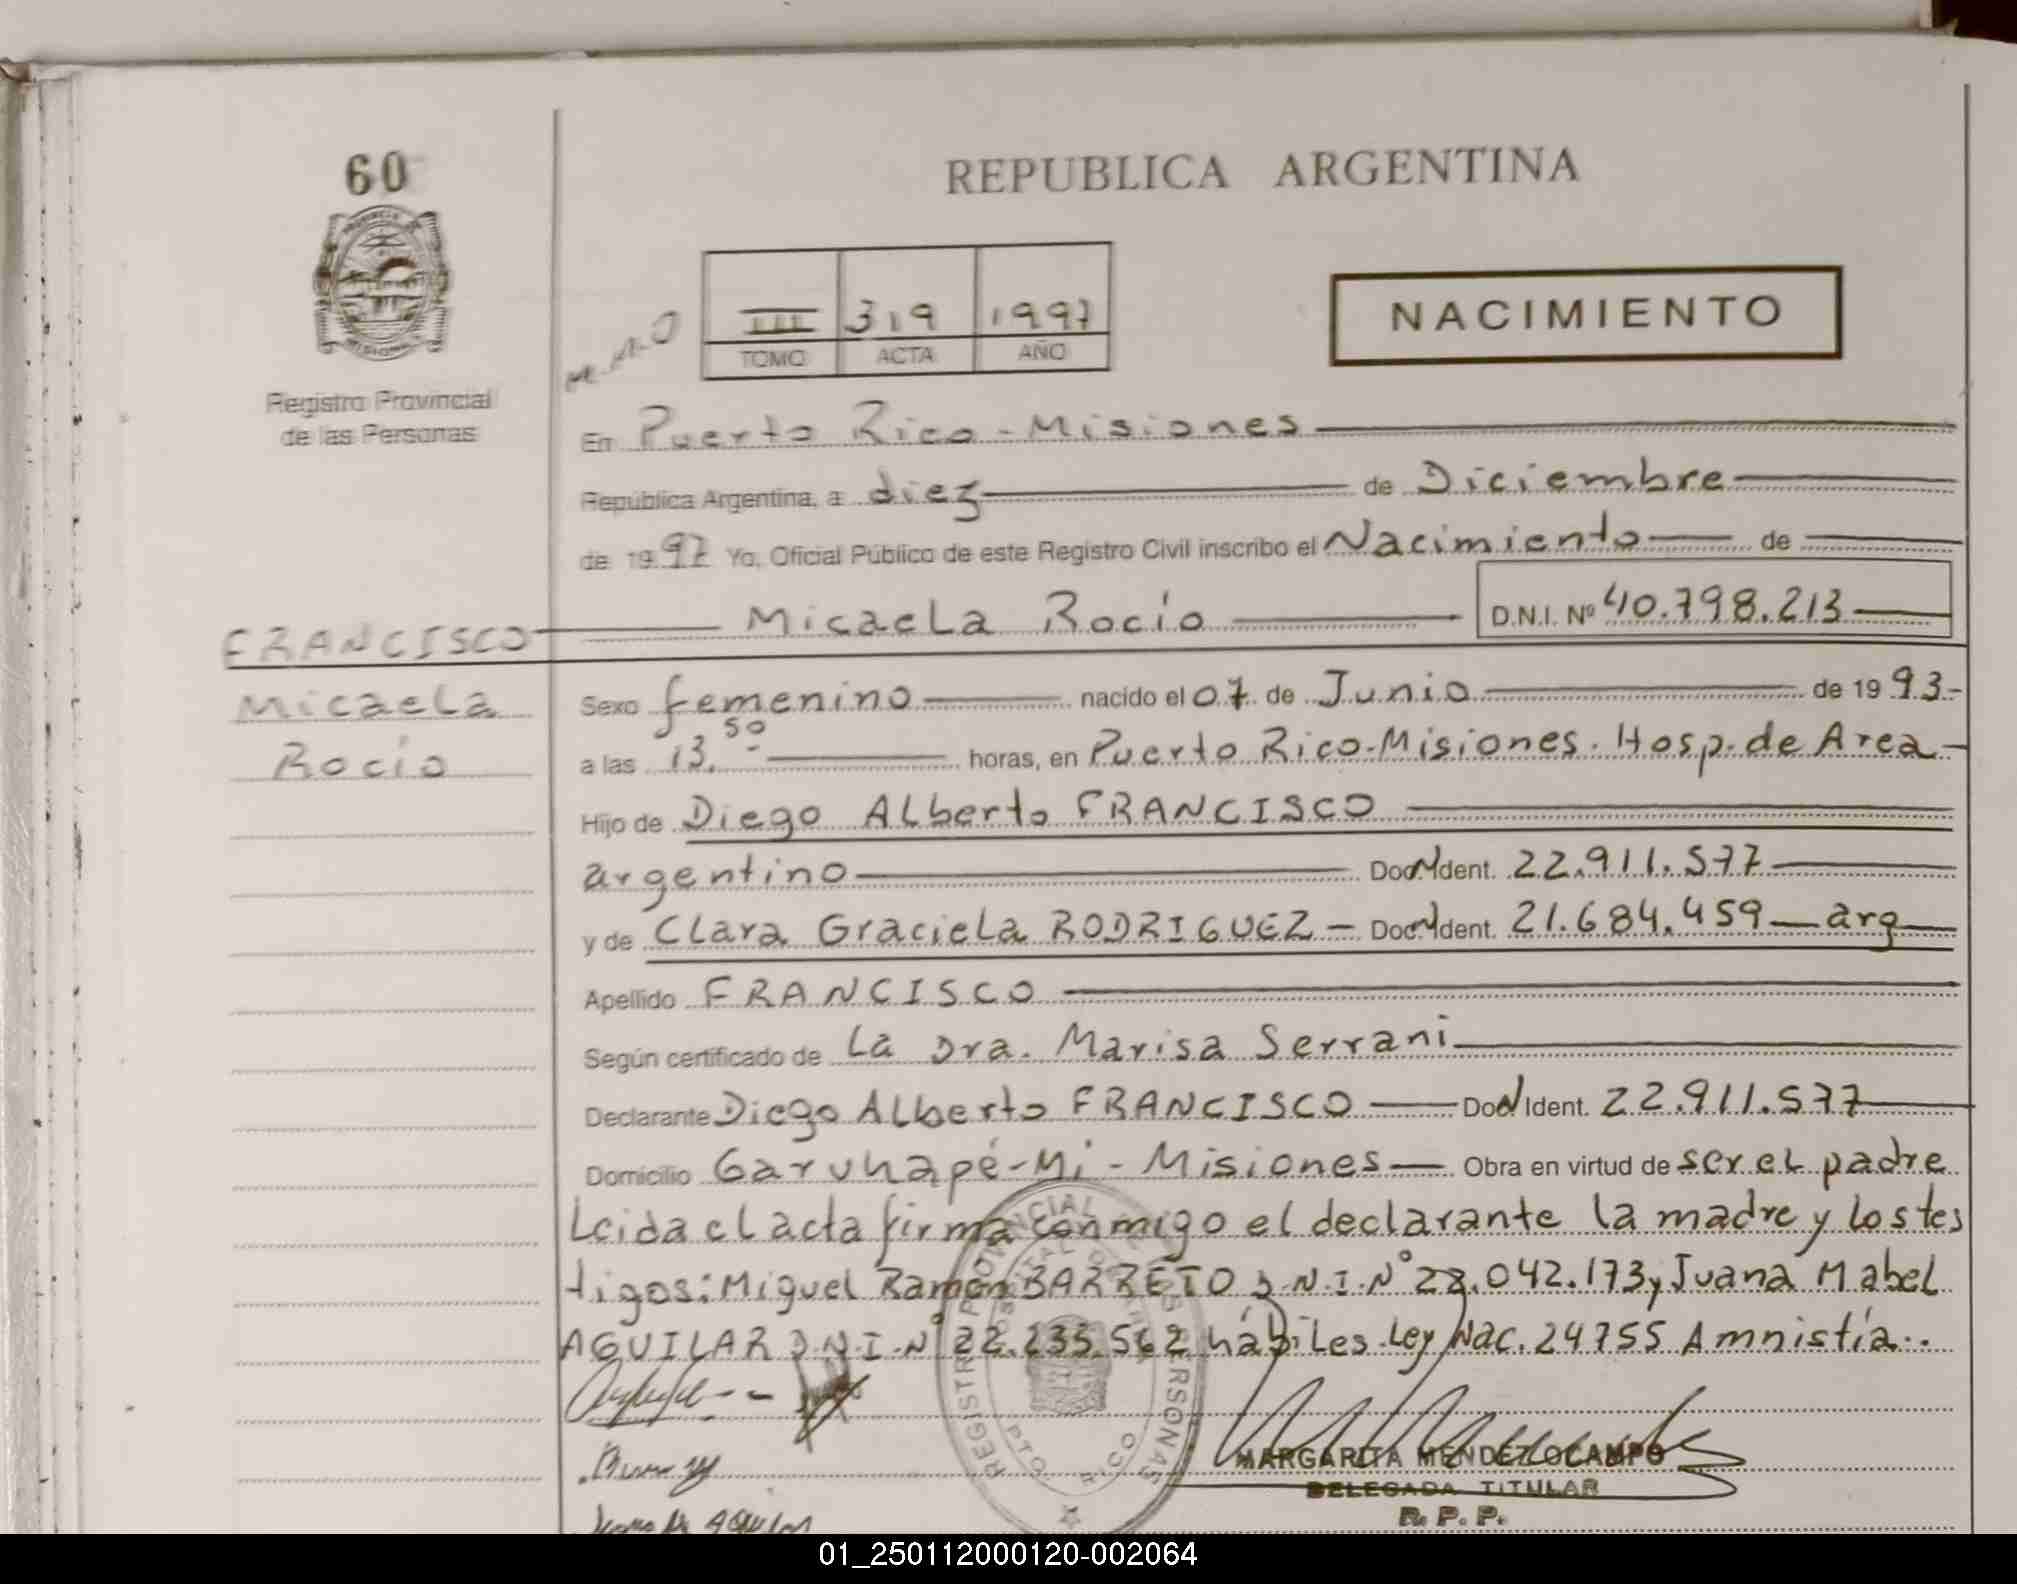 60
REPUBLICA ARGENTINA
III 319 1997
TOMO ACTA AÑO
NACIMIENTO
Registro Provincial
de las Personas
En Puerto Rico - Misiones
República Argentina, a diez de Diciembre
de 1997 Yo, Oficial Público de este Registro Civil inscribo el Nacimiento de
Micaela Rocío D.N.I. Nº 40.798.213
FRANCISCO
Micaela
Rocío
Sexo femenino nacido el 07 de Junio de 1993.-
a las 13.50 horas, en Puerto Rico-Misiones. Hosp. de Area-
Hijo de Diego Alberto FRANCISCO
argentino Doc. Ident. 22.911.577
y de Clara Graciela RODRIGUEZ - Doc. Ident. 21.684.459 - arg
Apellido FRANCISCO
Según certificado de La Dra. Marisa Serrani
Declarante Diego Alberto FRANCISCO Doc Ident. 22.911.577
Domicilio Garuhapé-Mi - Misiones Obra en virtud de ser el padre
Leida el acta firma conmigo el declarante la madre y los tes
tigos: Miguel Ramon BARRETO D.N.I.Nº 22.042.173 y Juana Mabel
AGUILAR D.N.I.Nº 22.235.562 hábiles. Ley Nac. 24755 Amnistía..
MARGARITA MENDEZ OCAMPO
DELEGADA TITULAR
R. P. P.
01_250112000120-002064